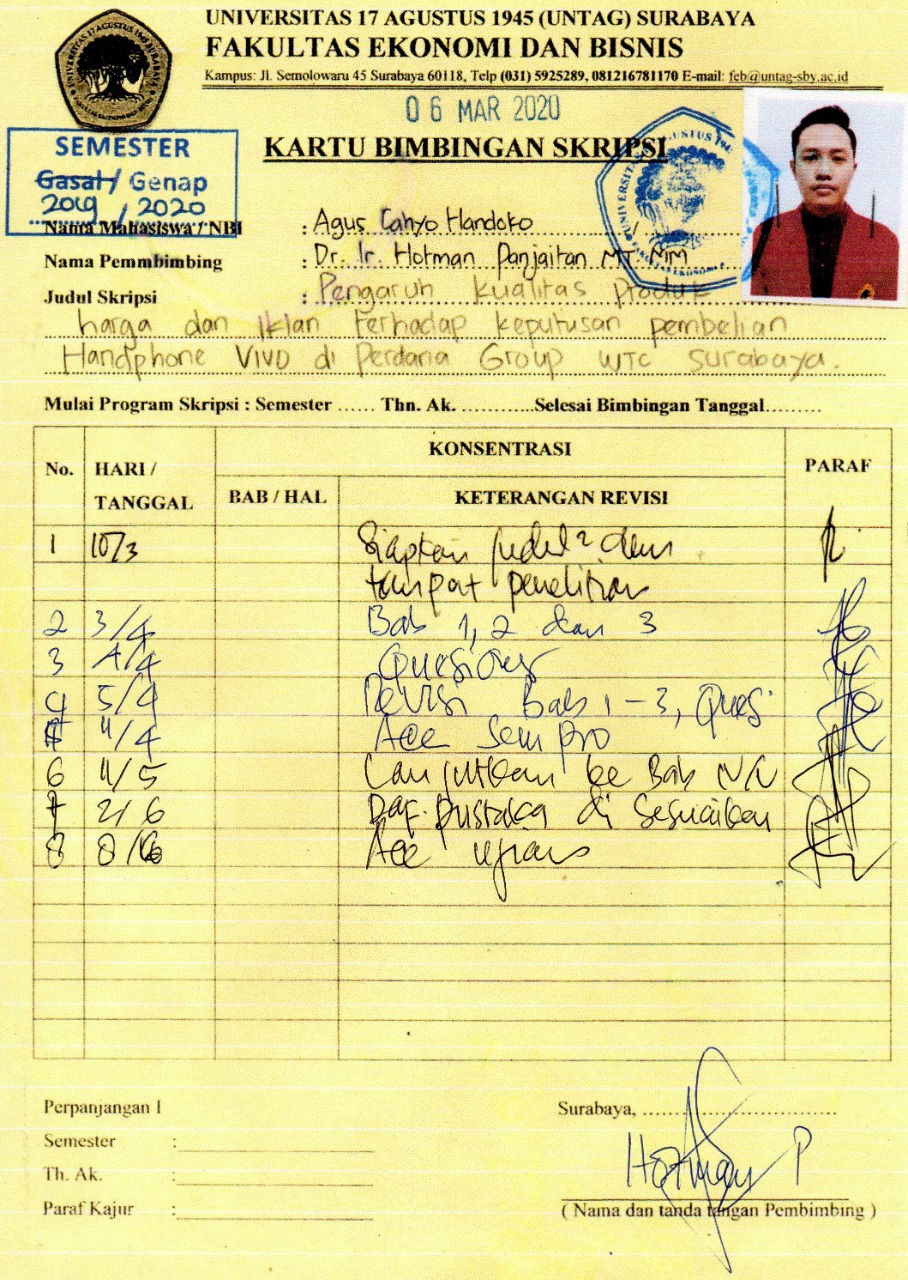 UNIVERSITAS 17 AGUSTUS 1945 (UNTAG) SURABAYA
FAKULTAS EKONOMI DAN BISNIS
Kampus: Jl. Semolowaru 45 Surabaya 60118, Telp (031) 5925289, 081216781170 E-mail: feb@untag-sby.ac.id
06 MAR 2020
KARTU BIMBINGAN SKRIPSI
SEMESTER
Gasal / Genap
2019 / 2020
Nama Mahasiswa / NBI : Agus Cahyo Handoko
Nama Pemmbimbing : Dr. Ir. Hotman Panjaitan MT. MM
Judul Skripsi : Pengaruh kualitas produk
harga dan Iklan terhadap keputusan pembelian
Handphone VIVO di Perdana Group WTC Surabaya.
Mulai Program Skripsi : Semester ...... Thn. Ak. ............Selesai Bimbingan Tanggal.........
No. HARI / TANGGAL KONSENTRASI PARAF
BAB / HAL KETERANGAN REVISI
1 10/3 Siapkan judul2 dan
tempat penelitian
2 3/4 Bab 1, 2 dan 3
3 4/4 Quesioner
4 5/4 Revisi Bab 1-3, Ques.
5 11/4 Acc Sempro
6 11/5 Lanjutkan ke Bab IV/V
7 2/6 Daf. Pustaka di Sesuaikan
8 8/6 Acc ujian
Perpanjangan I
Semester :
Th. Ak. :
Paraf Kajur :
Surabaya, ....................................
Hotman P
( Nama dan tanda tangan Pembimbing )